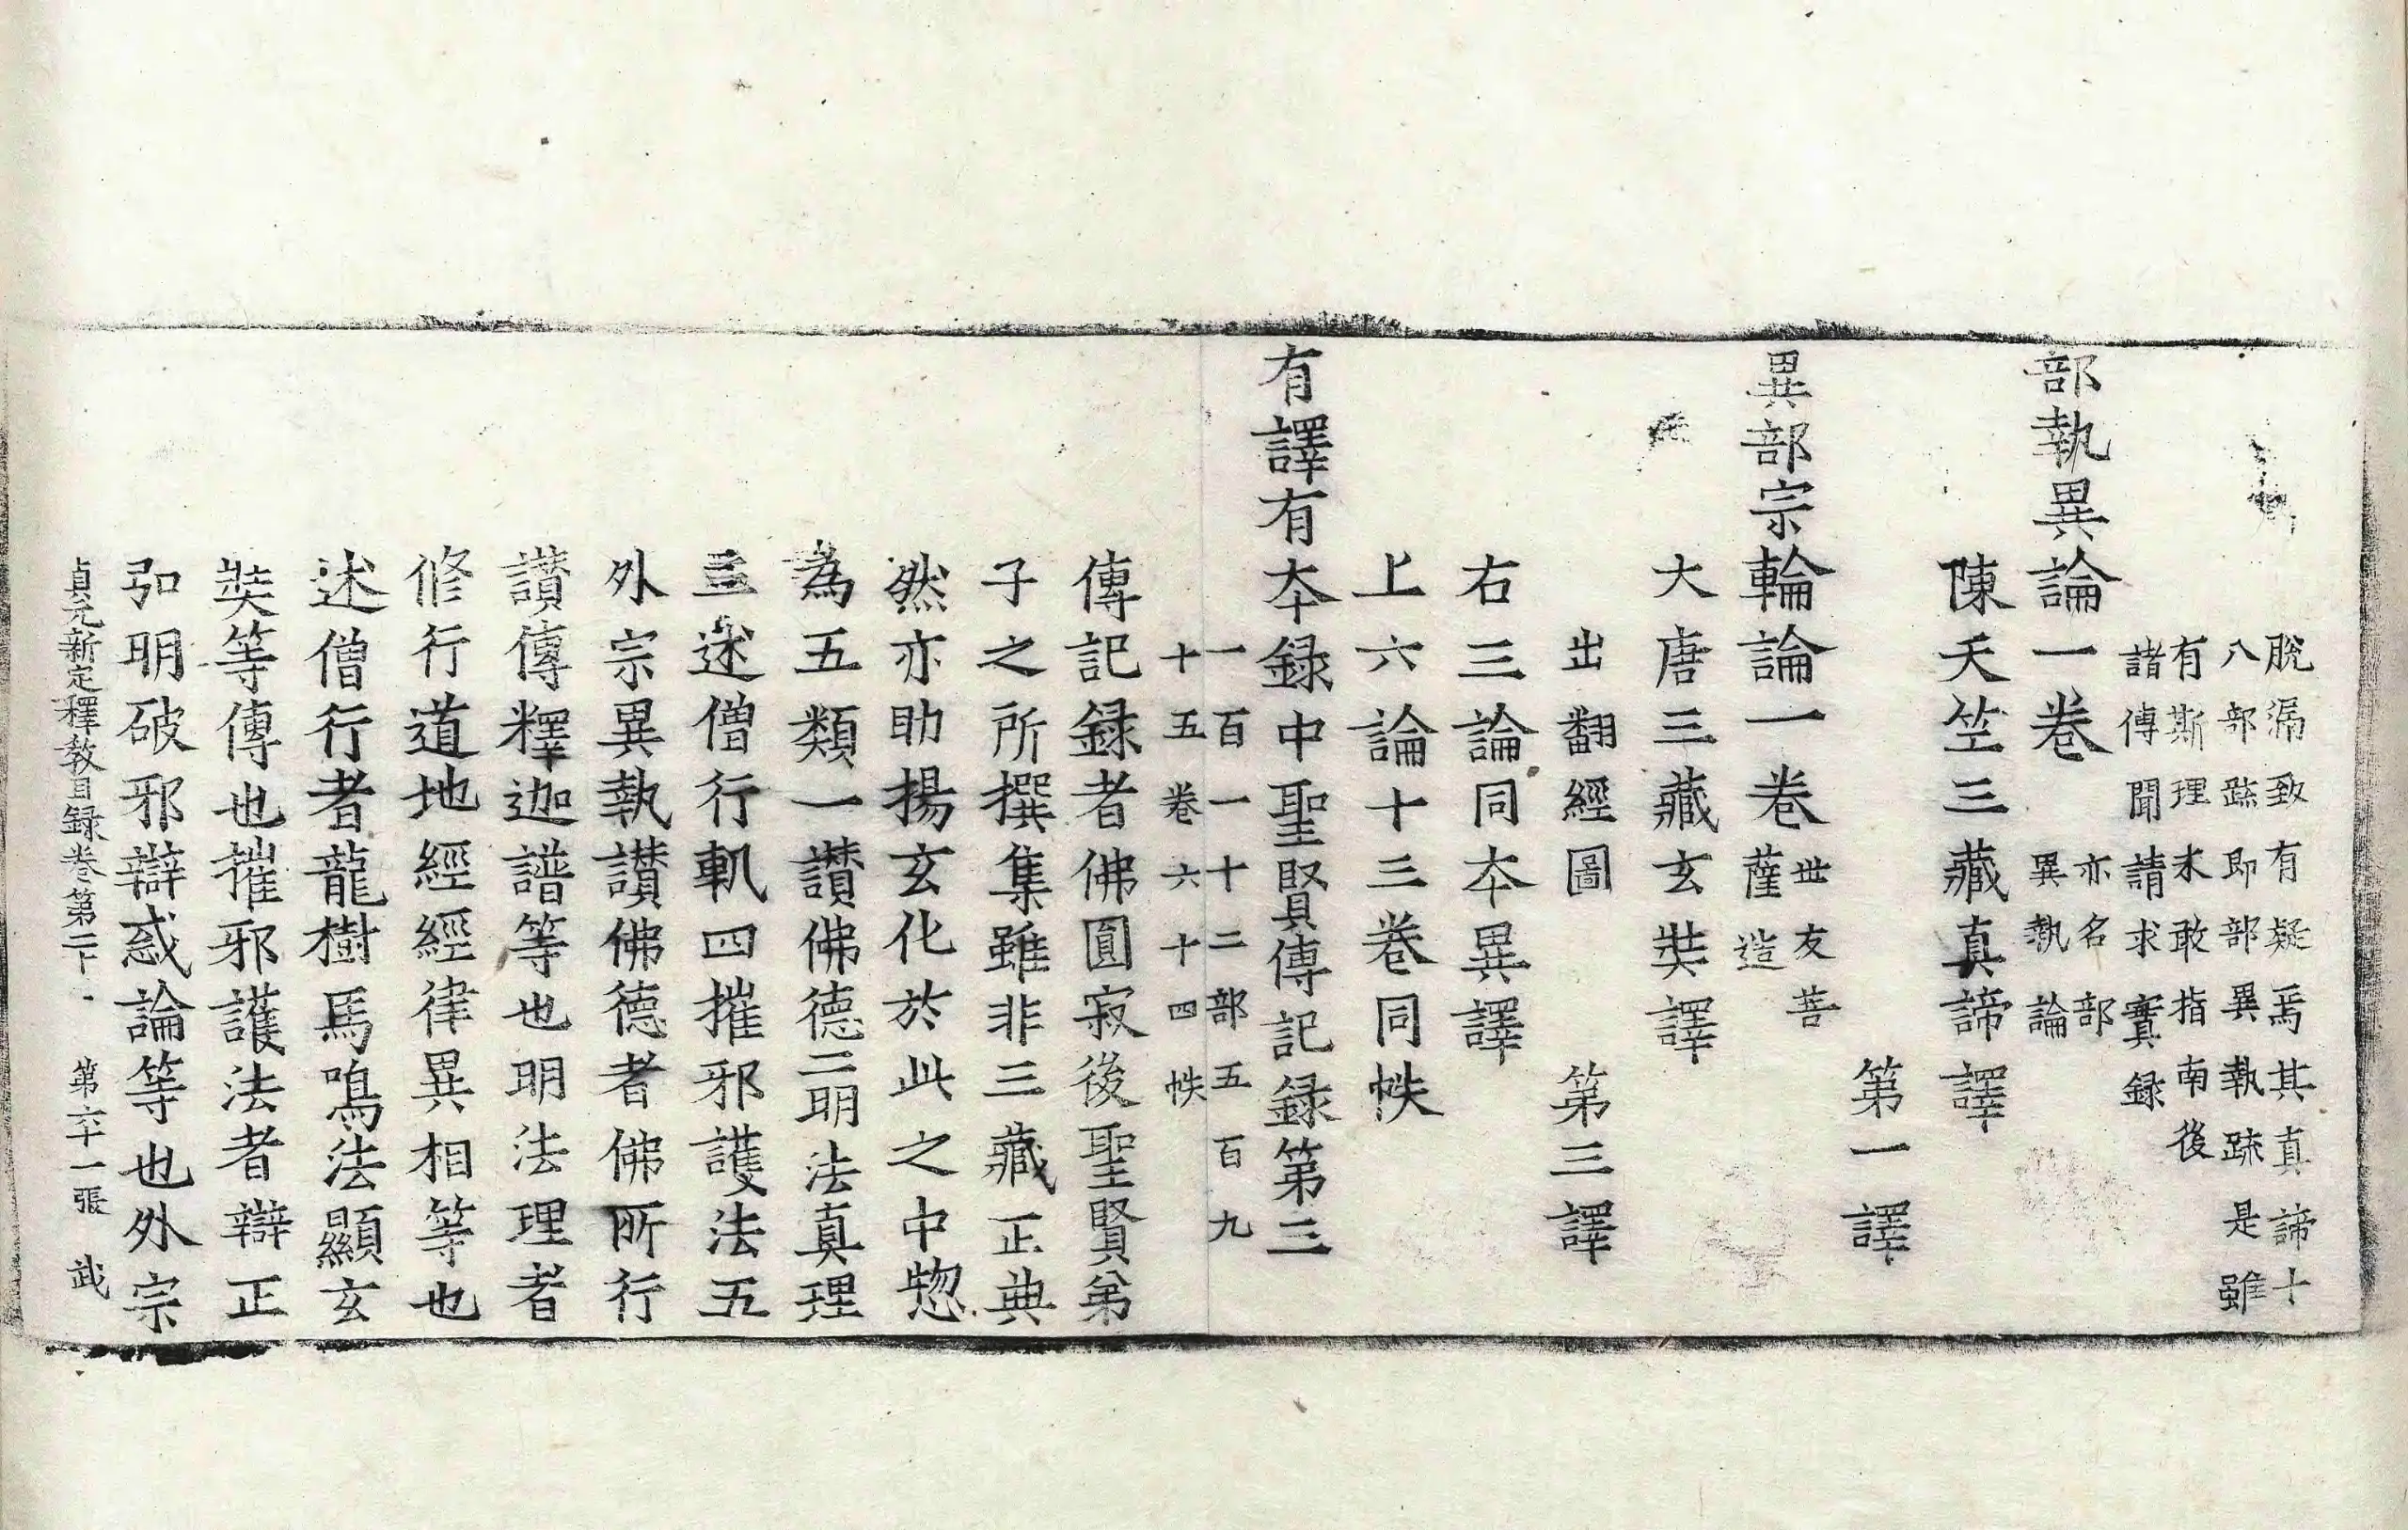 脫漏致有疑焉其真諦十
八部䟽即部異執䟽是雖
有斯理未敢指南後
諸傳聞請求實録
部執異論一卷亦名部異執論
陳天竺三藏真諦譯
第一譯
異部宗輪論一卷世友菩薩造
大唐三藏玄奘譯
出翻經圖 第三譯
右三論同本異譯
上六論十三卷同帙
有譯有本録中聖賢傳記録第三
一百一十二部五百九
十五卷六十四帙
傳記録者佛圓寂後聖賢弟
子之所撰集雖非三藏正典
然亦助揚玄化於此之中惣
為五類一讃佛德二明法真理
三述僧行軌四摧邪護法五
外宗異執讃佛德者佛所行
讃傳釋迦譜等也明法理者
修行道地經經律異相等也
述僧行者龍樹馬鳴法顯玄
奘等傳也摧邪護法者辯正
弘明破邪辯惑論等也外宗
貞元新定釋教目録卷第二十 第六十一張 武